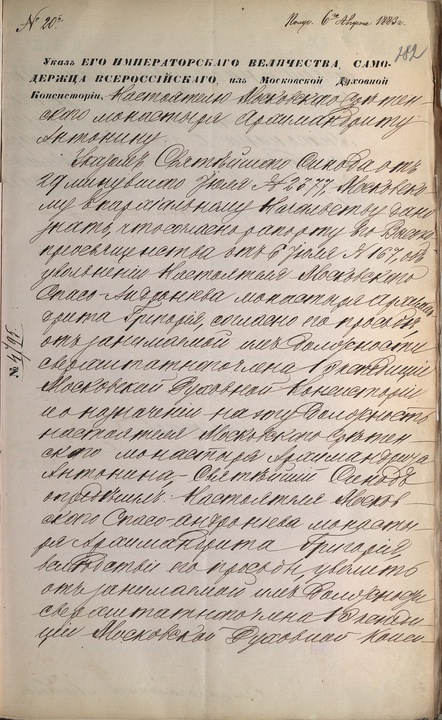 № 20.
Полу. 6го Августа 1883 г.
182
Указъ ЕГО ИМПЕРАТОРСКАГО ВЕЛИЧЕСТВА, САМО-
ДЕРЖЦА ВСЕРОССІЙСКАГО, изъ Московской Духовной
Консисторіи, Настоятелю Московскаго Срѣтен-
скаго монастыря Архимандриту
Антонину.
Указомъ Святѣйшаго Синода отъ
29 минувшаго Іюля № 2377 Московско-
му Епархіальному Начальству дано
знать, что согласно рапорту Его Высоко-
преосвященства отъ 6 Іюля № 167, объ
увольненіи Настоятеля Московскаго
Спасо-Андроніева монастыря Архиман-
дрита Григорія, согласно его просьбѣ
отъ занимаемой имъ должности
сверхштатнаго члена 1 Экспедиціи
Московской Духовной Консисторіи
и о назначеніи на эту должность
настоятеля Московскаго Срѣтен-
скаго монастыря Архимандрита
Антонина, Святѣйшій Синодъ
опредѣлилъ: Настоятеля Москов-
скаго Спасо-Андроніева монасты-
ря Архимандрита Григорія,
вслѣдствіе его просьбы, уволить
отъ занимаемой имъ должности
сверхштатнаго члена 1 Экспеди-
ціи Московской Духовной Конси-
№ 4795.